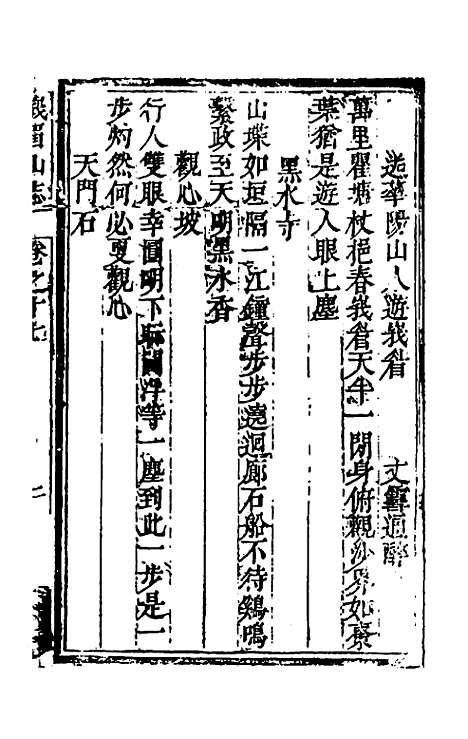 送華陽山人遊峩眉　文　通醉
萬里瞿塘杖挹春峩眉天半一閒身俯觀沙界如聚
葉猶是遊人眼上塵
黑水寺
山堞如垣隔一江鐘聲步步遶迴廊石船不待鷄鳴
發政至天明黑水香
觀心坡
行人雙眼幸圓明下眎閻浮等一塵到此一步是一
步灼然何必更觀心
天門石
峩眉山志　卷之十七